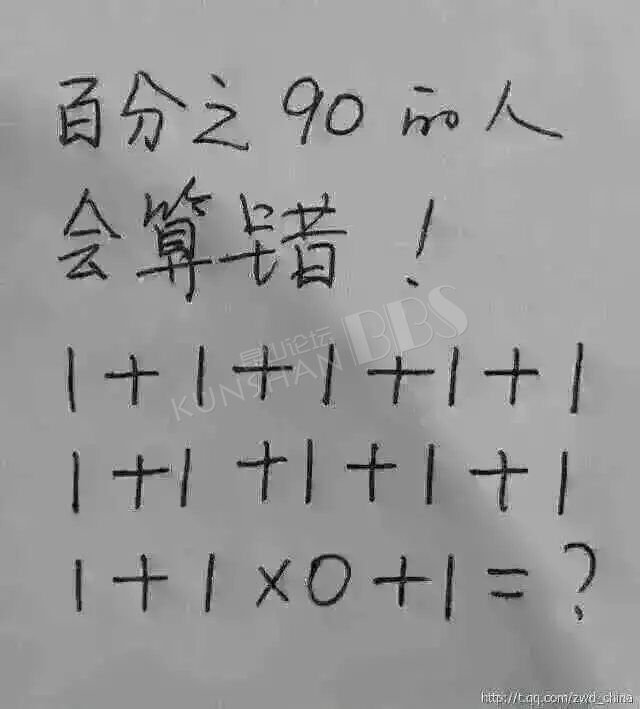 百分之90的人
会算错!
1+1+1+1+1
昆山论坛 BBS
KUNSHAN
1+1+1+1+1
1+1×0+1=?
http://t.qq.com/zwd_china